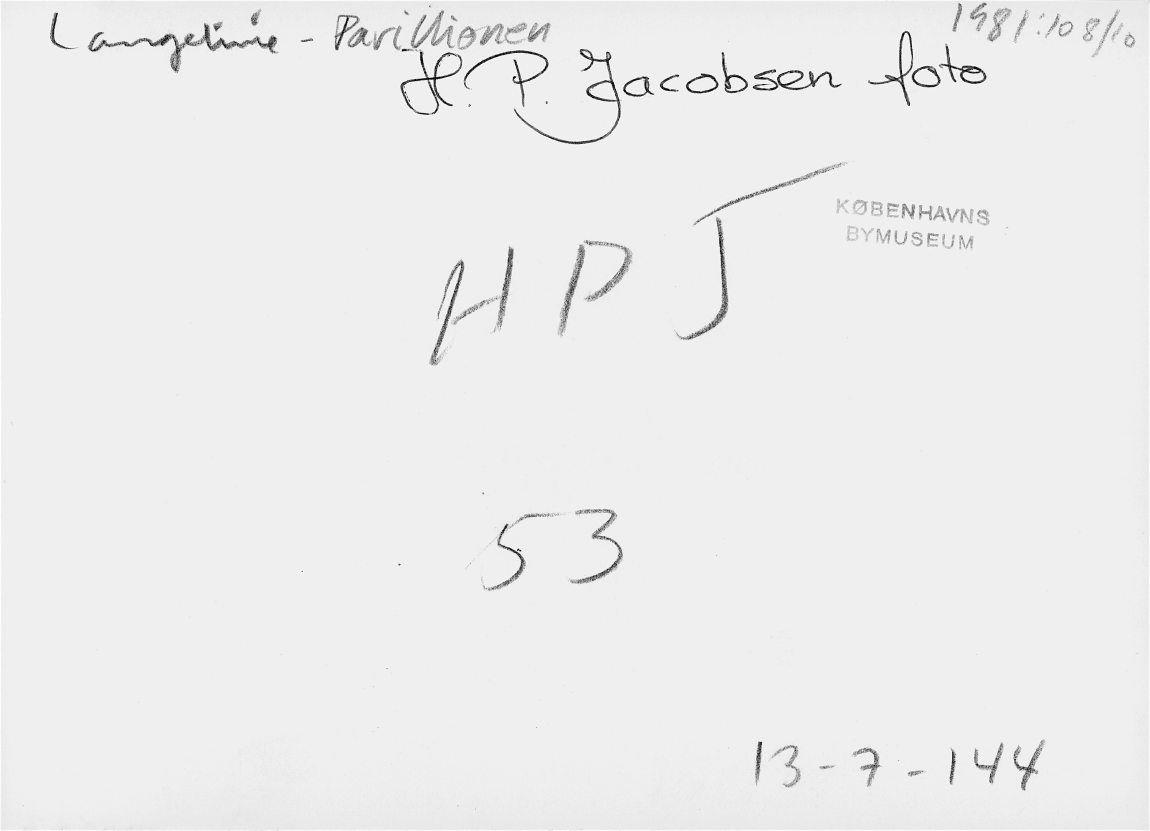 Langelinie - Pavillionen
1981:108/10
H. P. Jacobsen foto
HPJ
KØBENHAVNS
BYMUSEUM
53
13-7-144